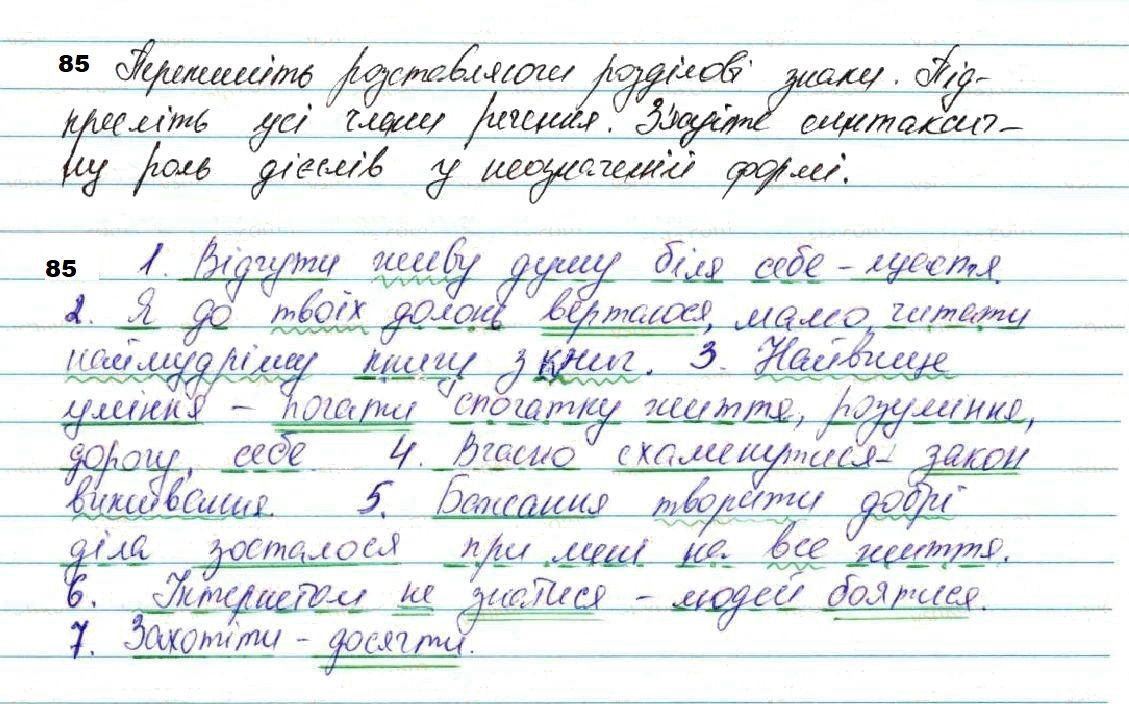 85 Перепишіть розставляючи розділові знаки. Під-
кресліть усі члени речення. З'ясуйте синтаксич-
ну роль дієслів у неозначеній формі.
85 1. Відчути живу душу біля себе – щастя.
2. Я до твоїх долонь верталося, мамо, читати
наймудрішу книгу з книг. 3. Найвище
уміння – почати спочатку життя, розуміння,
дорогу, себе. 4. Вчасно схаменутися – закон
виживання. 5. Бажання творити добрі
діла зосталося при мені на все життя.
6. Інтернетом не знатися – людей боятися.
7. Захотіти – досягти.